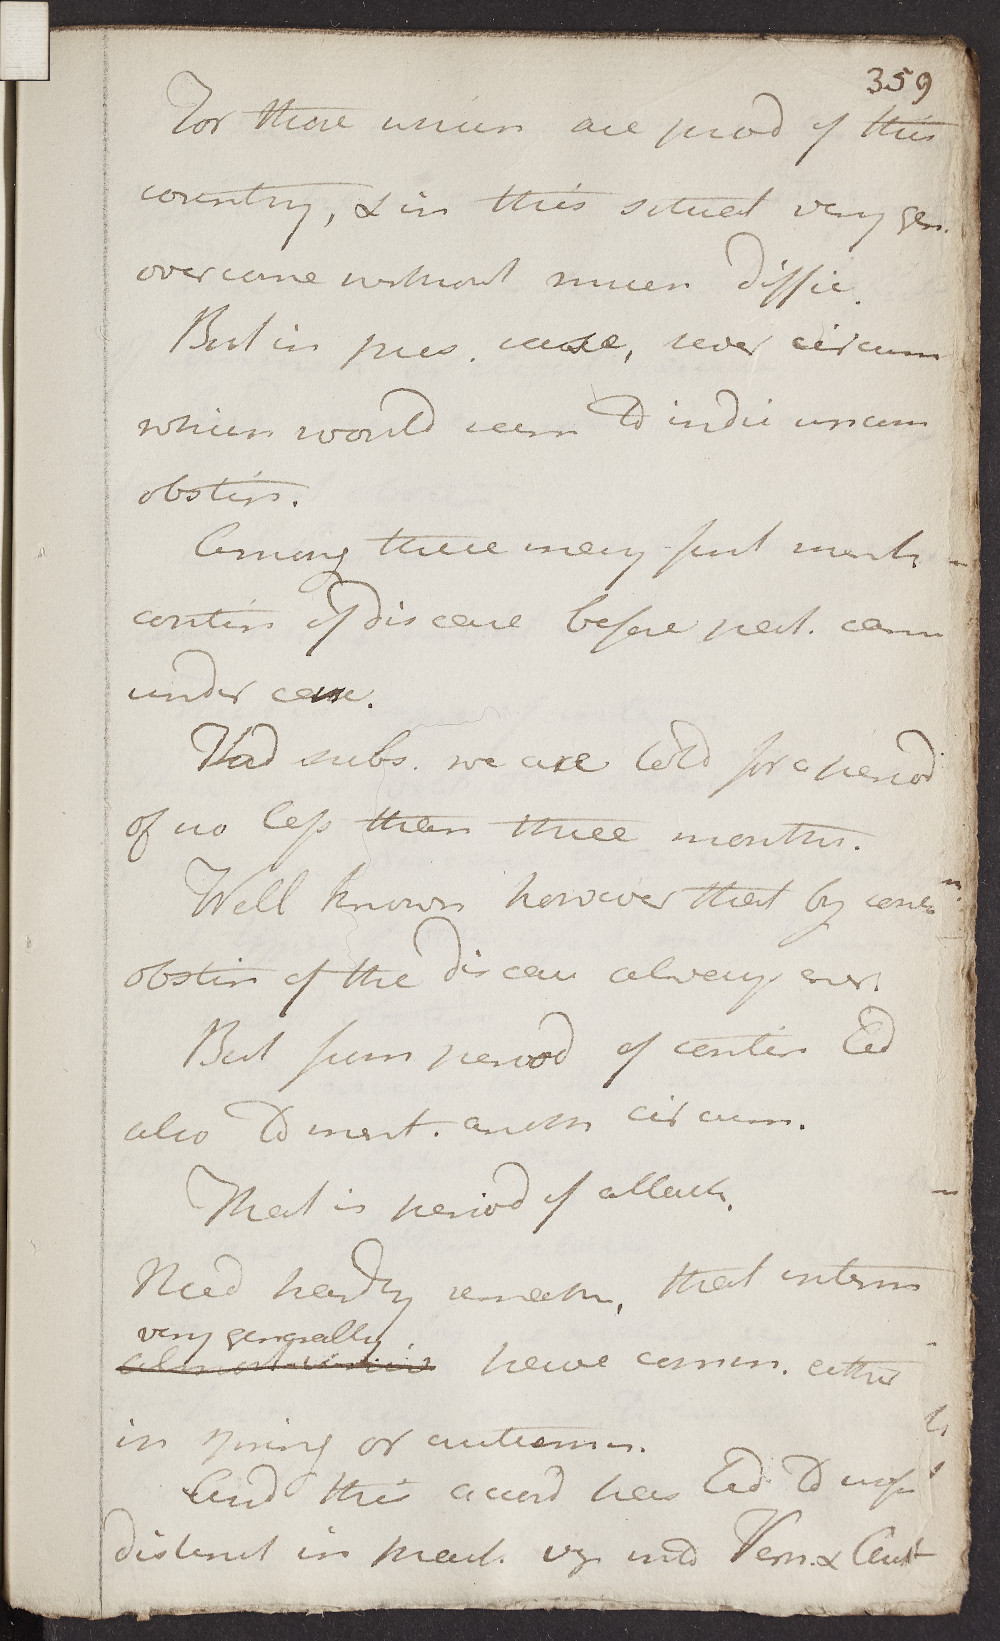 359
For those which are prod of this
country, & in this situat very gen.
overcome without much diffic.
But in pres. case, sever circum
which would seem to indic uncom
obstin.
Among these may first ment
contin of disease before pat. came
under care.
Had subs. we are told for a period
of no less than three months.
Well known however that by
obstin of the disease always
But from period of contin led
also to ment. anoth circum.
That is period of attack.
Need hardly remark, that interm
very generally
have comm. either
in spring or autumn.
And this accord has led to
distinct in pract. viz into Vern. & Aut